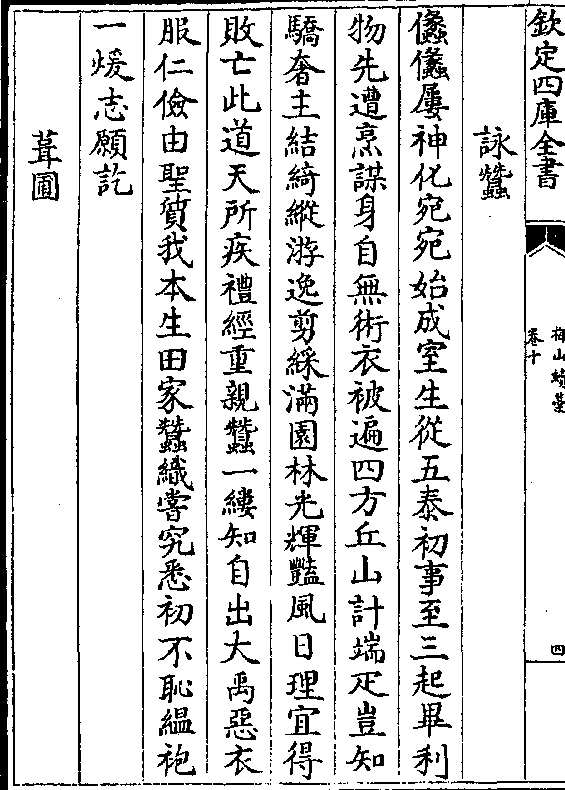 欽定四庫全書
梅山續藁
卷十
四
詠蠶
儽儽屢神化宛宛始成室生從五泰初事至三起畢利
物先遭烹謀身自無術衣被遍四方丘山計端疋豈知
驕奢主結綺縱游逸剪綵滿園林光輝豔風日理宜得
敗亡此道天所疾禮經重親蠶一縷知自出大禹惡衣
服仁儉由聖質我本生田家蠶織嘗究悉初不恥縕袍
一煖志願訖
葺圃